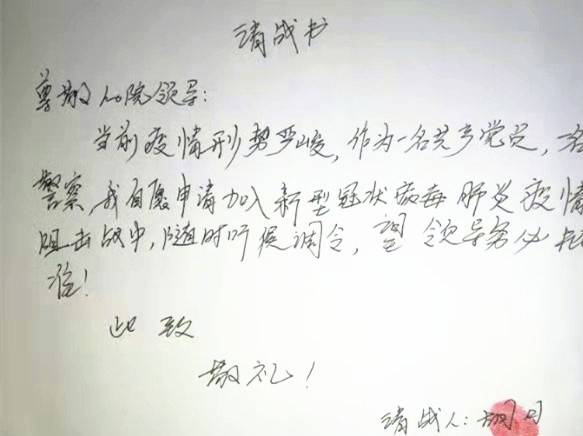 请战书
尊敬的院领导：
当前疫情形势严峻，作为一名共产党员，
警察，我自愿申请加入新型冠状病毒肺炎疫情
阻击战中，随时听候调令，望领导务必批
准！
此致
敬礼！
请战人：